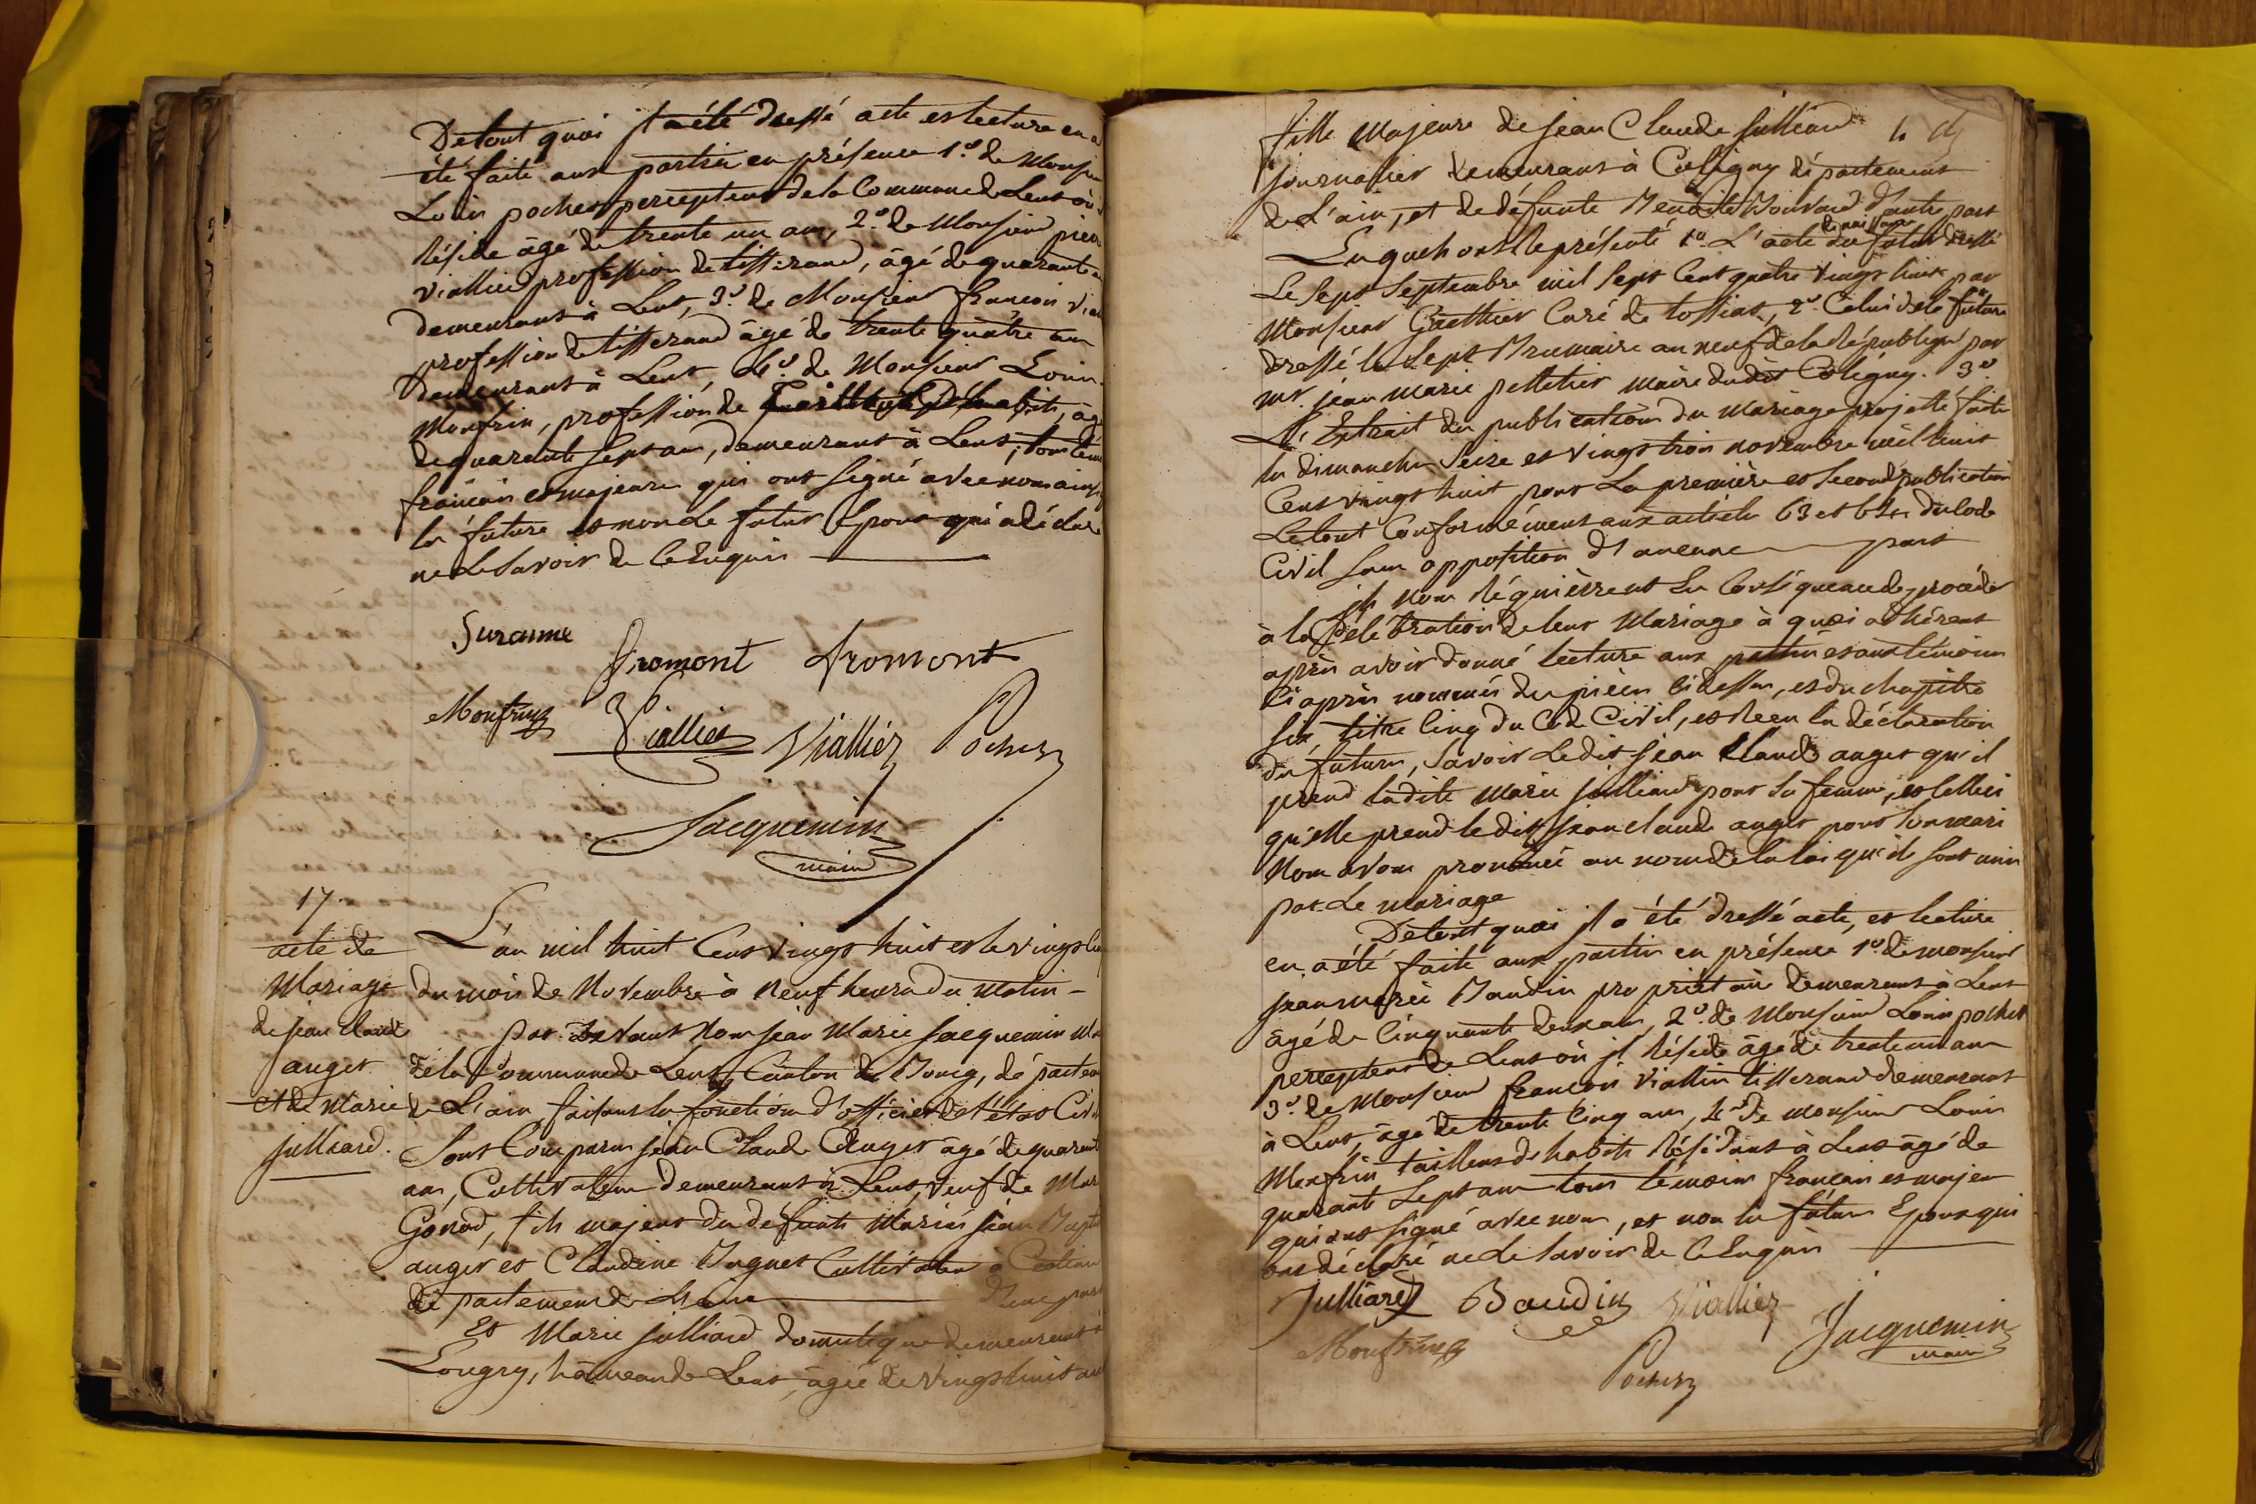 De tout quoi jl a été dressé acte et lecture en a
été faite aux parties en présence 1.o de Monsieu
Louis pochet percepteur de la Commune de Lent où
réside âgé de trente un ans, 2.o de Monsieur pierr
viallier profession de tisserand, âgé de quarante
demeurant à Lent, 3.o de Monsieur francois via
profession de tisserand âgé de trente quatre ans
demeurant à Lent, 4.o de Monsieur Louis
Monfrin, profession de d'habits, âg
de quarante sept ans, demeurant à Lent, tous tém
francais et majeurs qui ont signé avec nous ainsi
la future et non le futur Epoux qui a déclaré
ne le savoir de ce Enquis
Suranne
fromont fromont
Monfrin
Viallier Viallier Pochet
Jacquemin
maire
17.
acte de
Mariage
de jean claude
auger
et de Marie
julliard.
L'an mil huit Cent vingt huit et le vingt
du mois de Novembre à neuf heures du matin –
par devant Nous jean Marie jacquemin Ma
de la Commune de Lent, Canton de Bourg, départem
de L'ain, faisant les fonctions d'officier de l'état Civil
Sont Comparus jean Claude Auger âgé de quarante
ans, Cultivateur demeurant à Lent, veuf de Mar
Gonod, fils majeur des défunts Mariés jean Bapt
auger et Claudine Buguet Cultivateurs à
département de L'ain d'une part
Et Marie julliard domestique demeurant à
Longry, hâmeau de Lent, âgée de vingt huit ans
fille Majeure de jean Claude julliard
journalier demeurant à Coligny département
de L'ain, et de défunte Benoite Bouvard d'autre part
de naissance
Lesquels ont représenté 1.o L'acte du futur dressé
Le sept Septembre mil sept Cent quatre vingt huit par
Monsieur Gauthier Curé de tossiat, 2.o Celui de la future
dressé le sept Brumaire an neuf de la république par
mr. jean marie pelletier maire dudit Coligny. 3.o
L'Extrait des publications du Mariage projetté faites
les dimanches Seize et vingt trois novembre mil huit
Cent vingt huit pour La première et Seconde publication
Le tout Conformément aux articles 63 et 64 du Code
Civil sans opposition d'aucune part
jls nous réquièrent En Conséquence de procéder
à la Célébration de leur Mariage à quoi adhérant
après avoir donné lecture aux parties et aux témoins
Ci après nommés des pièces Ci dessus, et du chapitre
six titre Cinq du Code Civil, et recu la déclaration
des futurs, savoir Ledit jean Claude auger qu'il
prend ladite Marie julliard pour sa femme, et celleci
qu'elle prend ledit jean claude auger pour son mari
Nous avons prononcé au nom de la loi qu'ils sont unis
par Le mariage
De tout quoi jl a été dressé acte, et lecture
en a été faite aux parties en présence 1.o de monsieur
jean marie Baudin propriétaire demeurant à Lent
âgé de Cinquante deux ans, 2.o de Monsieur Louis pochet
percepteur de Lent où jl réside âgé de trente un ans
3.o de Monsieur francois viallier tisserand demeurant
à Lent, âgé de trente Cinq ans, 4.o de monsieur Louis
Monfrin tailleur d'habits résidant à Lent âgé de
quarante sept ans tous témoins francais et majeurs
qui ont signé avec nous, et non les futurs Epoux qui
ont déclaré ne le savoir de ce Enquis
Julliard Baudin Viallier
Monfrin Pochet Jacquemin
maire